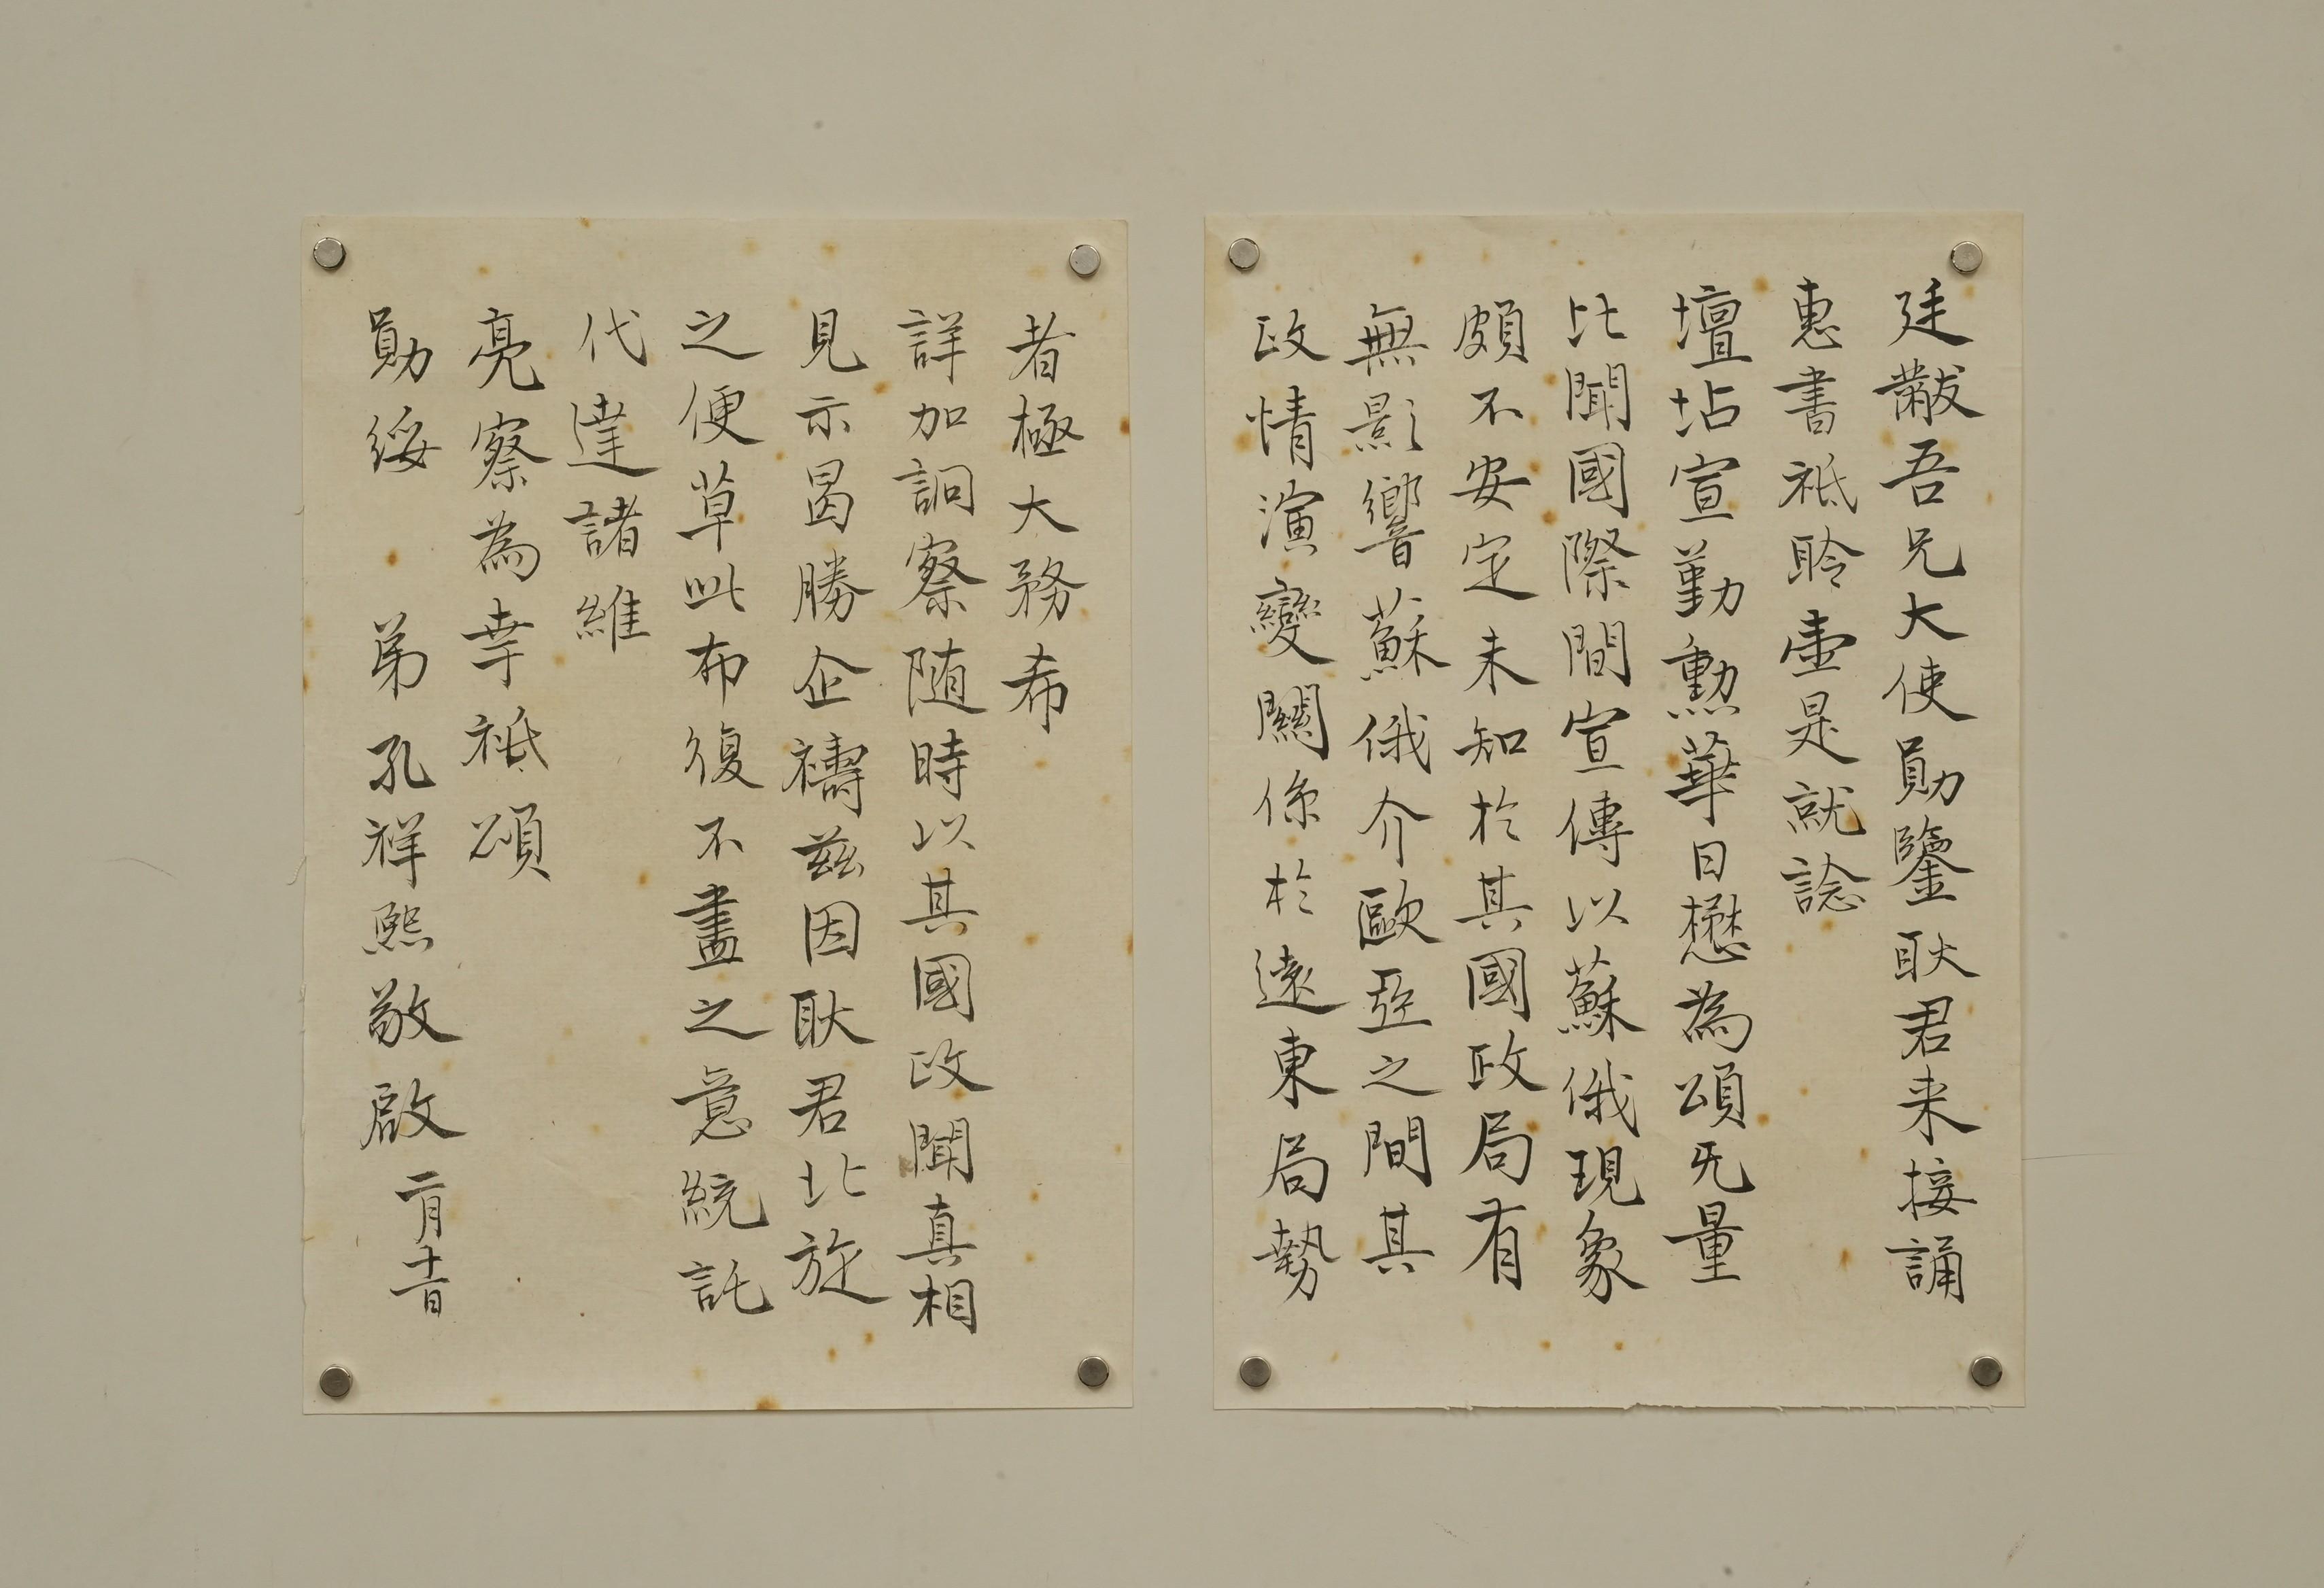 廷黻吾兄大使勛鑒耿君来接誦
惠書祗聆壹是就諗
壇坫宣勤勳華日懋為頌旡量
比聞國際間宣傳以蘇俄現象
頗不安定未知於其國政局有
無影響蘇俄介歐亞之間其
政情演變關係於遠東局勢
者極大務希
詳加詗察随時以其國政聞真相
見示曷勝企禱兹因耿君北旋
之便草此布復不盡之意統託
代達諸維
亮察為幸祗頌
勛綏 弟孔祥熙敬啟 二月十一日